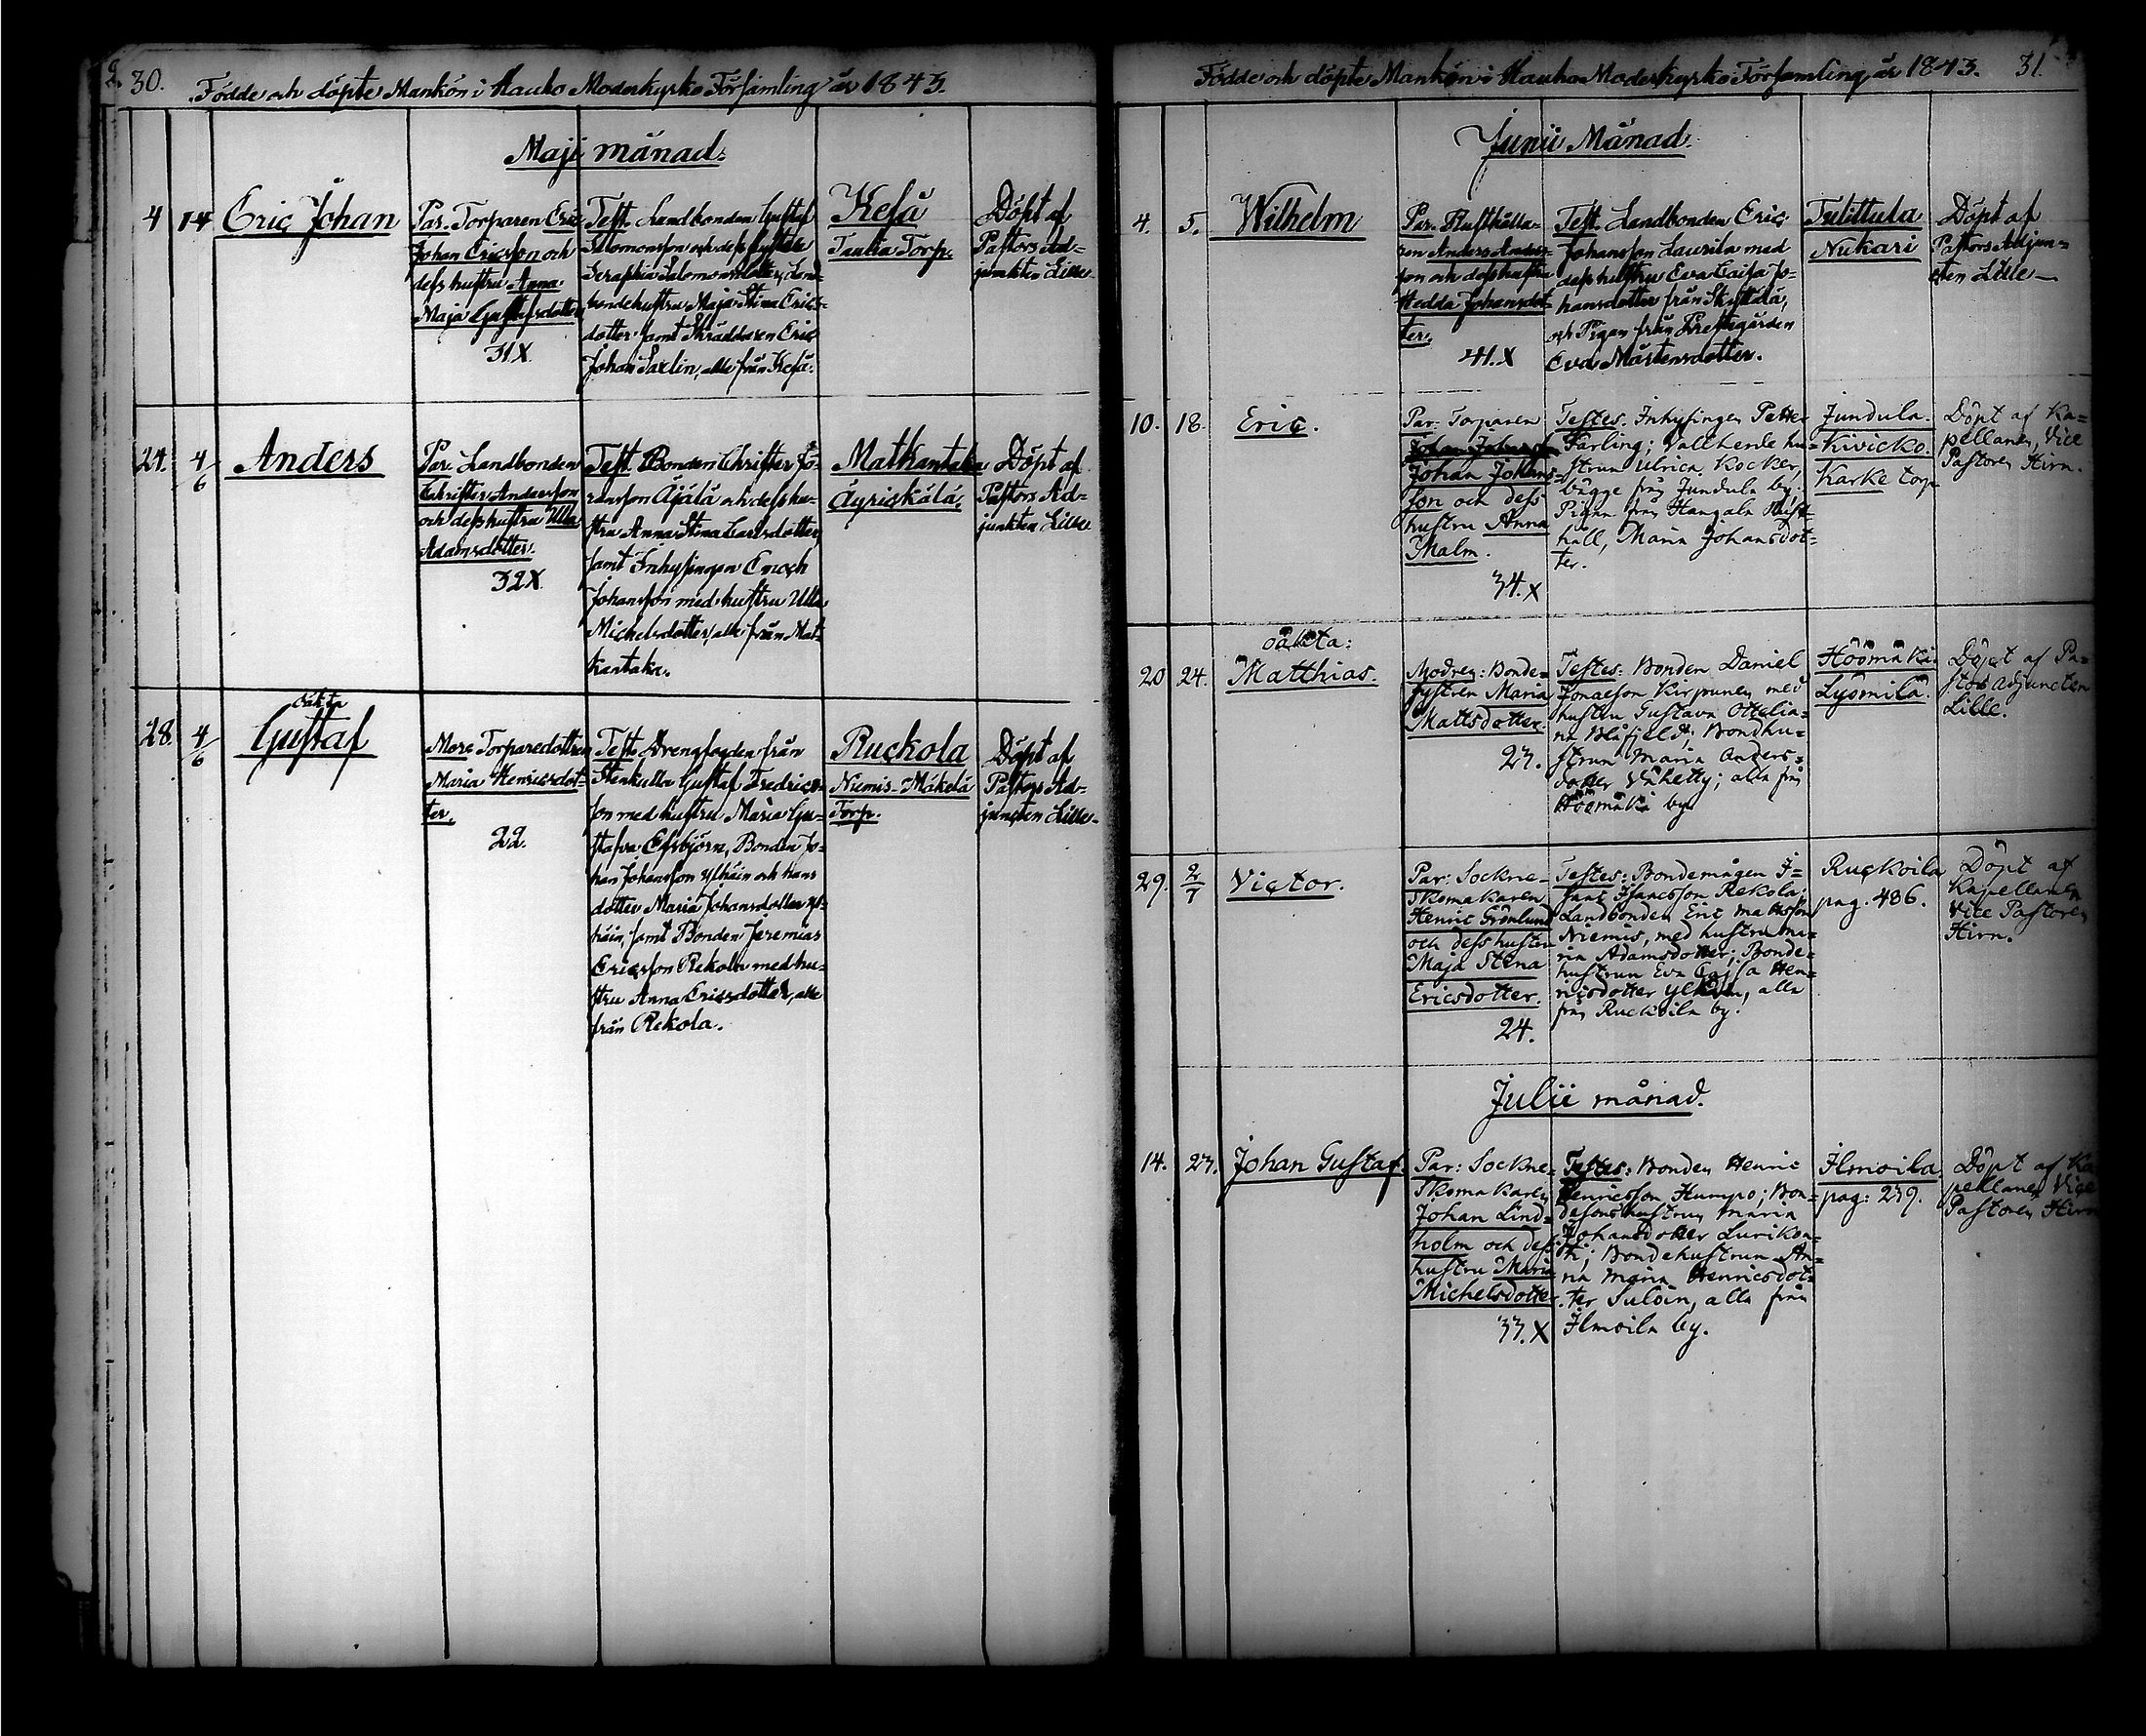 30.
Födde och döpte Mankön i Hauho Moderkyrko Församling år 1843.
Maji månad.
4 14 Eric Johan
Par. Torparen Eric
Johan Ericsson och
dess hustru Anna
Maja Gustafsdotter
31X
Test. Landbonden Gustaf
Salomonsson och dess syster
Seraphia Salomonsdotter, Land-
bondehustru Maja Stina Erics-
dotter samt Skräddaren Eric
Johan Saxlin, alle från Kesä.
Kesä
Taulia Torp.
Döpt af
Pastors Ad-
junkten Lille.
24. 4/6 Anders
Par. Landbonden
Christer Andersson
och dess hustru Ulla
Adamsdotter.
32X
Test. Bonden Christer Jö-
ransson Äjälä och dess hu-
stru Anna Stina Carlsdotter,
samt Inhysingen Enoch
Johansson med hustru Ulla
Michelsdotter, alle från Mat-
kantaka.
Matkantaka
Äyriskälä.
Döpt af
Pastors Ad-
junkten Lille
28. 4/6
oäkta
Gustaf
More Torparedottren
Maria Henricsdot-
ter.
22.
Test. Drengfogden från
Stenkulla Gustaf Fredrics-
son med hustru Maria Gu-
stafva Esbjörn, Bonden Jo-
han Johansson Ylhäin och hans
dotter Maria Johansdotter Yl-
häin, samt Bonden Jeremias
Ericsson Rekola med hu-
stru Anna Ericsdotter, alle
från Rekola.
Ruckola
Niemis-Mäkelä
Torp.
Döpt af
Pastors Ad-
juncten Lille.
Födde och döpte Mankön i Hauho Moderkyrko Församling år 1843. 31.
Junii Månad.
4. 5. Wilhelm
Par. Rusthålla-
ren Anders Anders-
son och dess hustru
Hedda Johansdot-
ter.
41.X
Test. Landbonden Eric
Johansson Laurila med
dess hustru Eva Caisa Jo-
hansdotter från Skyttälä,
och Pigan från Prestgården
Eva Mårtensdotter.
Tulittula
Nukari
Döpt af
Pastors Adjun-
cten Lille
10. 18. Eric.
Par: Torparen
Johan Johans-
son och dess
hustru Anna
Malm.
34.X
Testes: Inhysingen Petter
Färling; Vallherde hu-
strun Ulrica Kocker,
bägge från Jundula by;
Pigan från Hangala Rust-
håll, Maria Johansdot-
ter.
Jundula.
Kivicko.
Karke torp
Döpt af Ka-
pellanen, Vice
Pastoren Hirn.
20 24.
oäkta:
Matthias.
Modren: Bonde-
systren Maria
Mattsdotter.
23.
Testes: Bonden Daniel
Jonaeson Kirpunen med
hustru Gustava Ottelia-
na Blåfield; Bondhu-
strun Maria Anders-
dotter Vähetty; alla från
Höömäki by
Höömäki.
Lysmilä.
Döpt af Pa-
stors adjuncten
Lille.
29. 2/7 Victor.
Par: Sockne-
Skomakaren
Henric Grönlund
och dess hustru
Maja Stina
Ericsdotter.
24.
Testes: Bondemågen I-
sac Isaacsson Rekola;
Landbonden Eric Mattsson
Niemis, med hustru Ma-
ria Adamsdotter; Bonde-
hustrun Eva Caisa Hen-
ricsdotter, alla
från Ruckoila by.
Ruckoila
pag. 486.
Döpt af
Kapellanen
Vice Pastoren
Hirn.
Julii månad.
14. 23. Johan Gustaf.
Par: Sockne-
Skomakaren
Johan Lind-
holm och dess
hustru Maria
Michelsdotter.
33.X
Testes: Bonden Henric
Henricsson Humpo; Bon-
dasonshustrun Maria
Johansdotter Lurikon-
ti; Bondehustrun An-
na Maria Henricsdot-
ter Suloin, alla från
Ilmoila by.
Ilmoila
pag: 239.
Döpt af Ka
pellanen Vice
Pastoren Hirn